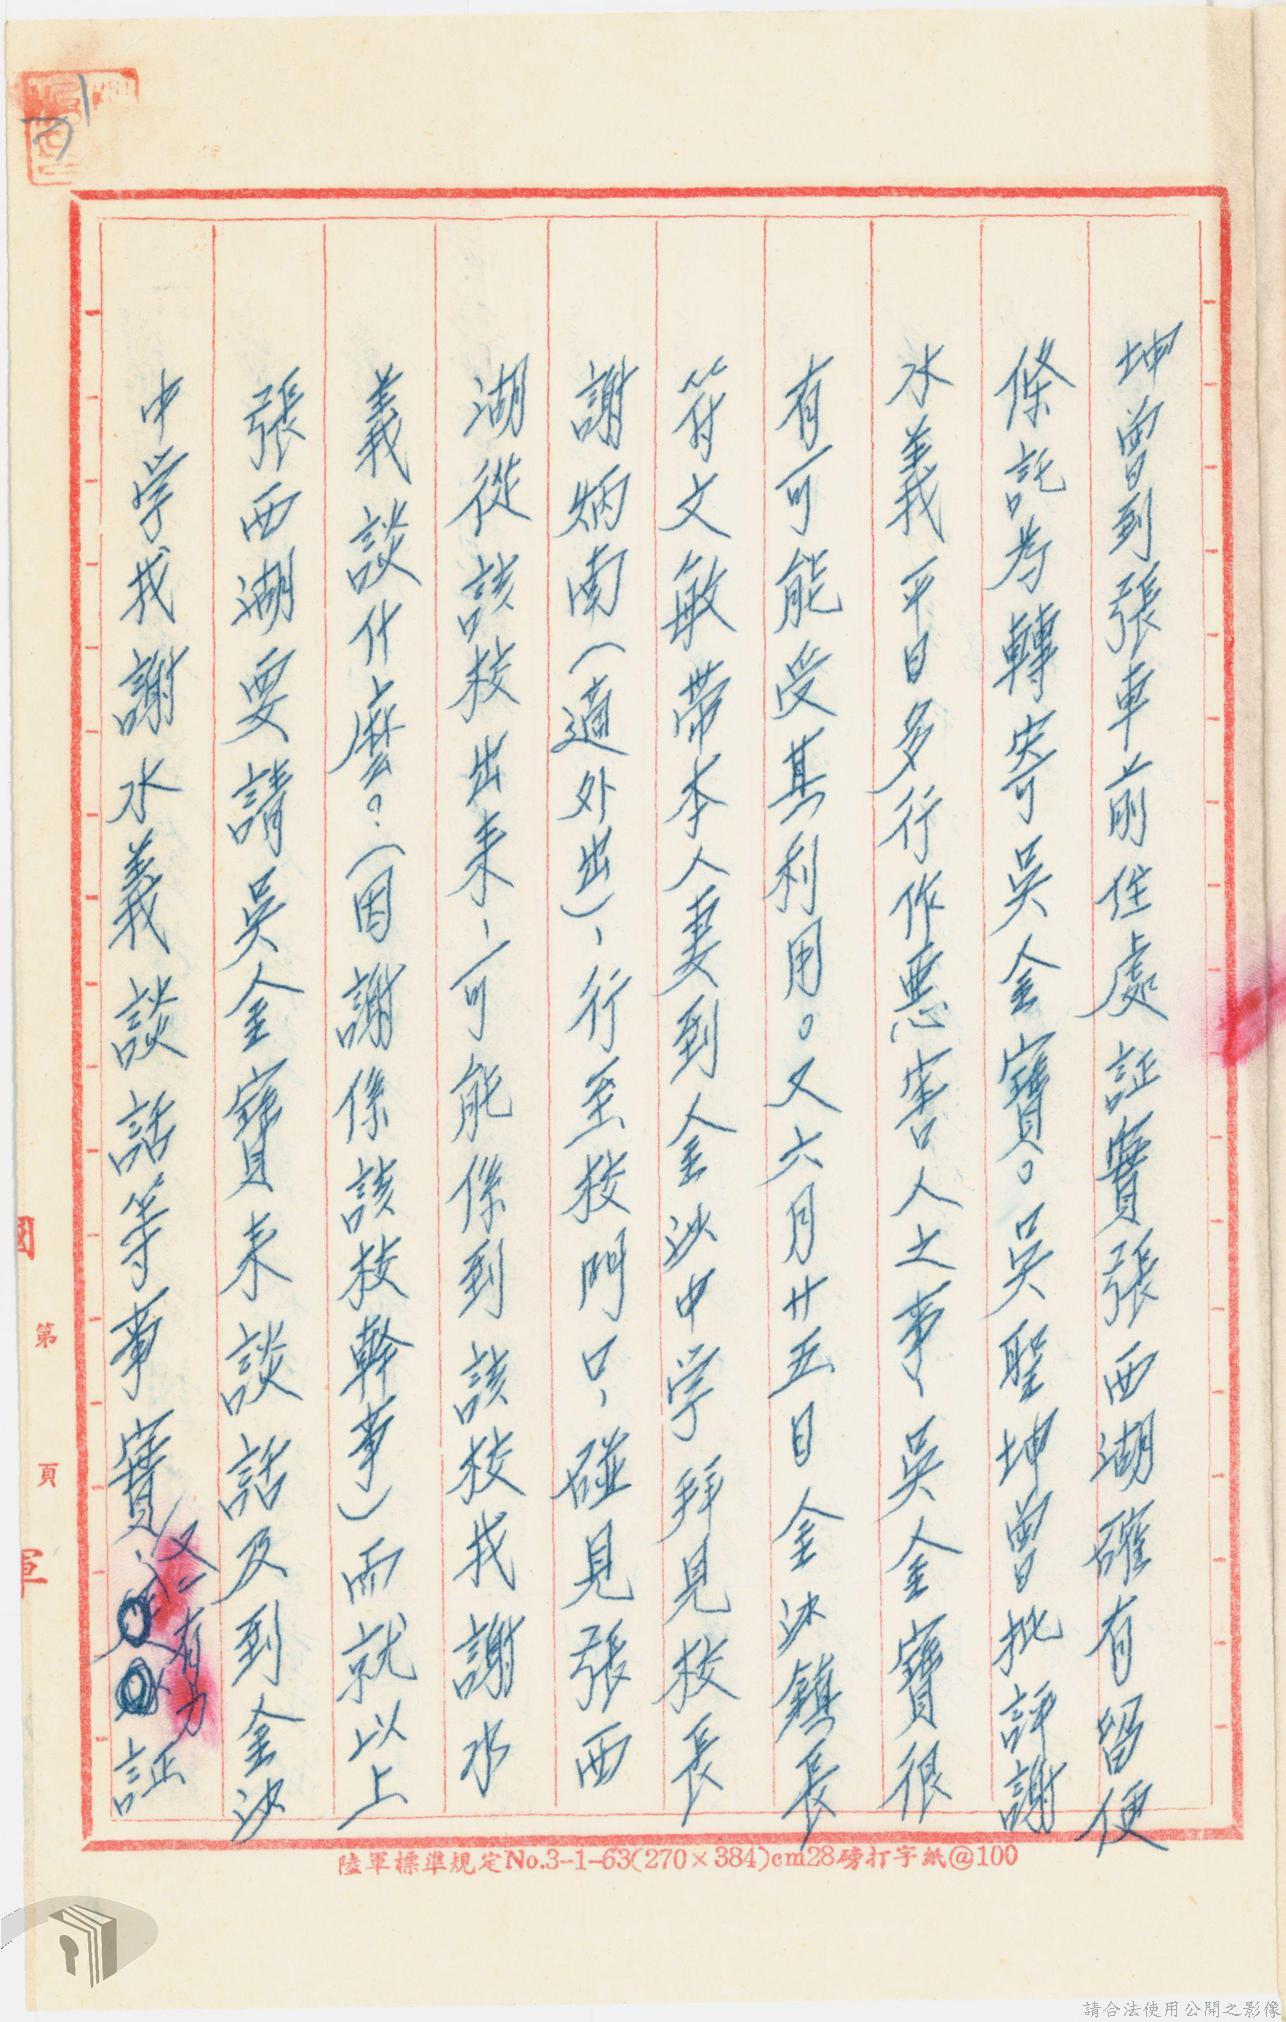 坤曾到張車前住處証實張西湖確有留便
條託為轉寄吳金寶。吳聖坤曾批評謝
水義平日多行作惡害人之事、吳金寶很
有可能受其利用。又六月廿五日金沙鎮長
符文敏帶本人妻到金沙中学拜見校長
謝炳南(適外出)、行至校門口、碰見張西
湖從該校出来、可能係到該校找謝水
義談什麼？(因謝係該校幹事)而就以上
張西湖要請吳金寶来談話及到金沙
中学找謝水義談話等事實、
又有力
証
第 頁
陸軍標準規定No.3-1-63(270×384)cm28磅打字紙@100
請合法使用公開之影像